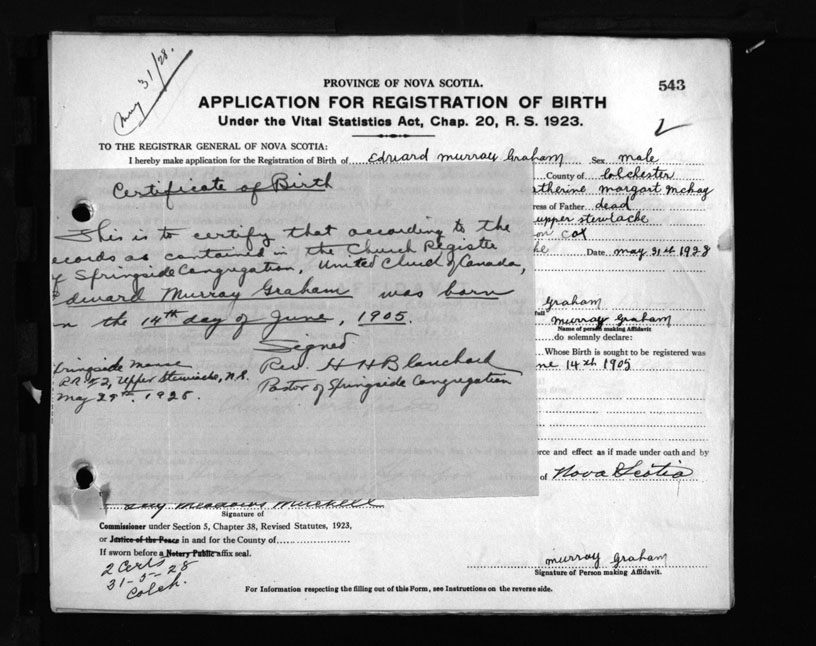 May 31/28.
PROVINCE OF NOVA SCOTIA.
543
APPLICATION FOR REGISTRATION OF BIRTH
Under the Vital Statistics Act, Chap. 20, R. S. 1923.
TO THE REGISTRAR GENERAL OF NOVA SCOTIA:
I hereby make application for the Registration of Birth of Edward Murray Graham Sex male
County of Colchester
atherine margart mcKay
ress of Father dead
upper stewiacke
on cox
he Date may 31st 1928
Certificate of Birth
This is to certify that according to the
ecords as contained in the Church Registre
of Springside Congregation, United Church of Canada,
Edward Murray Graham was born
on the 14th day of June, 1905.
Signed
Rev. H H Blanchard
Pastor of Springside Congregation
pringside Manse
R.R. #2, Upper Stewiacke, N.S.
May 29th, 1928.
Graham
full murray Graham
Name of person making Affidavit
do solemnly declare:
Whose Birth is sought to be registered was
ne 14th 1905
orce and effect as if made under oath and by
of Nova Scotia
Signature of
Commissioner under Section 5, Chapter 38, Revised Statutes, 1923,
or Justice of the Peace in and for the County of
If sworn before a Notary Public affix seal.
2 Certs
31-5-28
Colch.
murray Graham
Signature of Person making Affidavit.
For Information respecting the filling out of this Form, see Instructions on the reverse side.